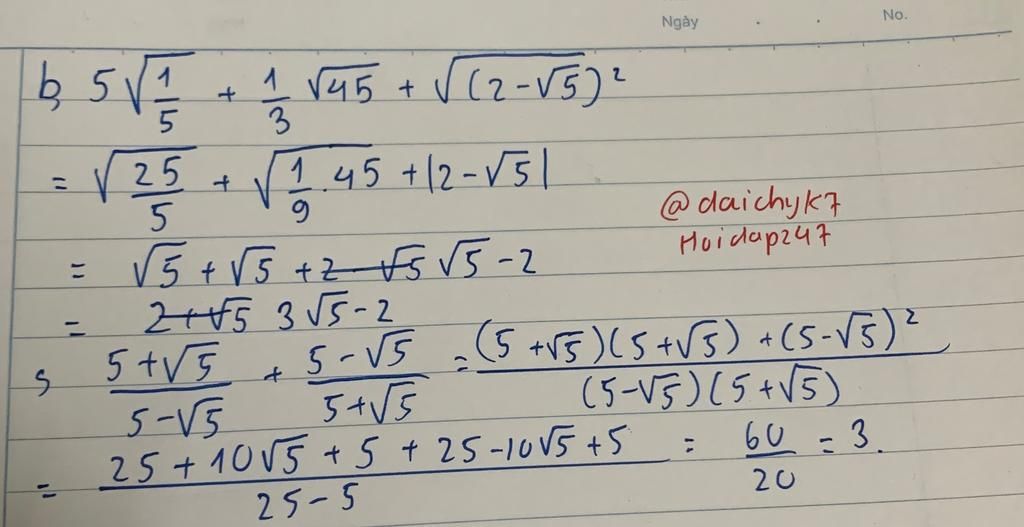 Ngày . . No.
b, 5√(1/5) + 1/3 √45 + √((2-√5)²)
= √(25/5) + √(1/9 . 45) + |2-√5|
@daichyk7
Hoidap247
= √5 + √5 + 2-√5 √5 - 2
= 2+√5 3√5 - 2
s, (5+√5)/(5-√5) + (5-√5)/(5+√5) = ((5+√5)(5+√5) + (5-√5)²)/((5-√5)(5+√5))
= (25 + 10√5 + 5 + 25 - 10√5 + 5)/(25-5) = 60/20 = 3.